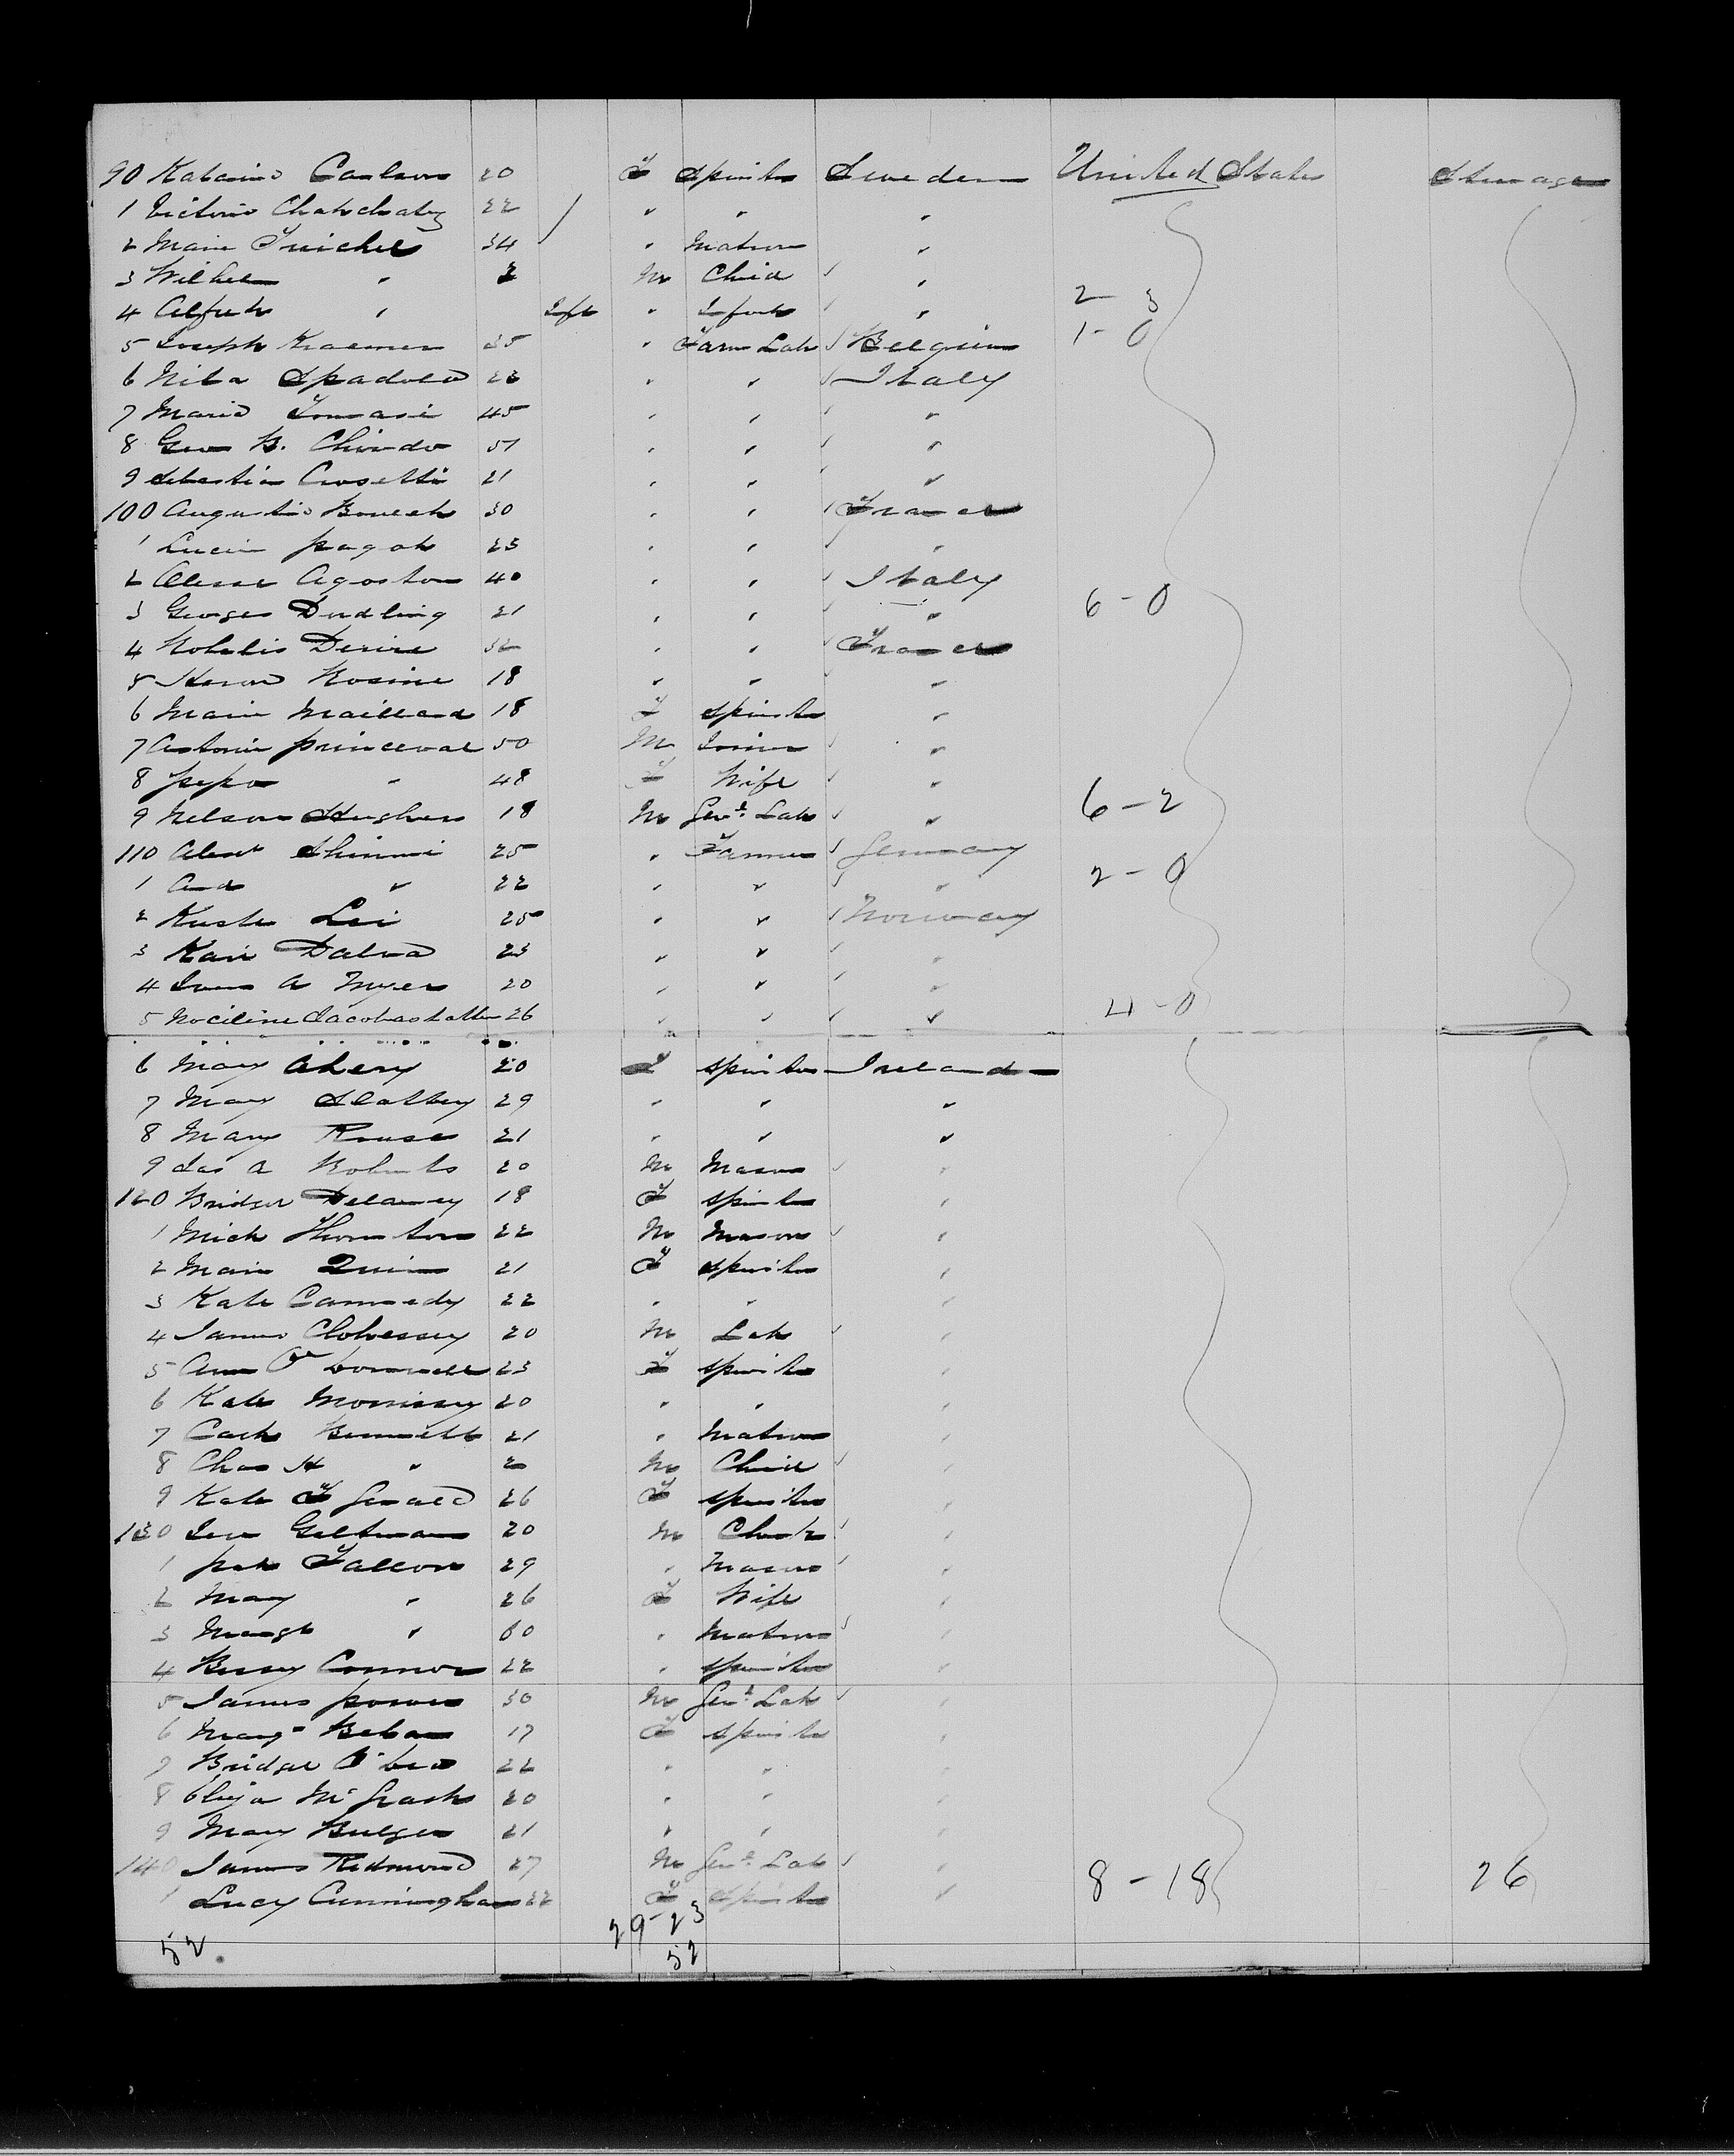 90 Katarina Carlson 20 F Spinstr Sweden United States Steerage
1 Victoria 22 " " "
2 Marie Treichel 34 " Matron "
3 Wilhelm " M Child "
4 Alfred " Inft " Infant " 2 3
5 Joseph Kraemer 35 " Farm Lab Belgium 1 - 0
6 Nita Spadola 22 " " Italy
7 Maria Tomasi 45 " " "
8 Geo B. Chiado 51 " " "
9 Sebastian Crosetti 21 " " "
100 Augustin 30 " " France
1 Lucien 23 " " "
2 Agoston 40 " " Italy
3 Georges Dudling 21 " " " 6 - 0
4 Desire 32 " " France
5 Rosine 18 " " "
6 Marie Maillard 18 F Spinstr "
7 Antonin Princeval 50 M Joiner "
8 " 48 F Wife "
9 Nelson Hughes 18 M Genl Lab " 6 - 2
110 Albert 25 " Farmer Germany
1 And " 22 " " " 2 - 0
2 Lei 25 " " Norway
3 Kari 23 " " "
4 A Myer 20 " " "
5 26 " " " 4 - 0
6 Mary Ahern 20 F Spinstr Ireland
7 Mary Slattery 29 " " "
8 Mary Rouse 21 " " "
9 Jas A Roberts 20 M Mason "
120 Bridget Delaney 18 F Spinstr "
1 Mich Thornton 22 M Mason "
2 Marie Quinn 21 F Spinstr "
3 Kate Cannedy 22 " " "
4 James Clohessey 20 M Lab "
5 Ann O'Donnell 23 F Spinstr "
6 Kate Morrissey 20 " " "
7 Cath Bennett 21 " Matron "
8 Chas H " 2 M Child "
9 Kate F Gerald 26 F Spinstr "
130 Geltman 20 M Clerk "
1 Pat Fallon 29 " Mason "
2 Mary " 26 F Wife "
3 Margt " 60 " Matron "
4 Bessy Connor 22 " Spinstr "
5 James Power 30 M Genl Lab "
6 Margt 17 F Spinstr "
7 Bridget 22 " " "
8 Eliza McGrath 20 " " "
9 Mary Bulger 21 " " "
140 James Redmond 27 M Genl Lab " 8 - 18 26
1 Lucy Cunningham 22 F Spinstr "
29 23
52 52